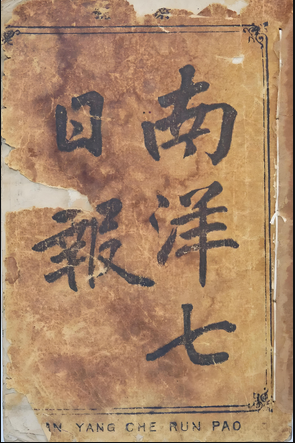 南洋七
日報
AN YANG CHE RUN PAO